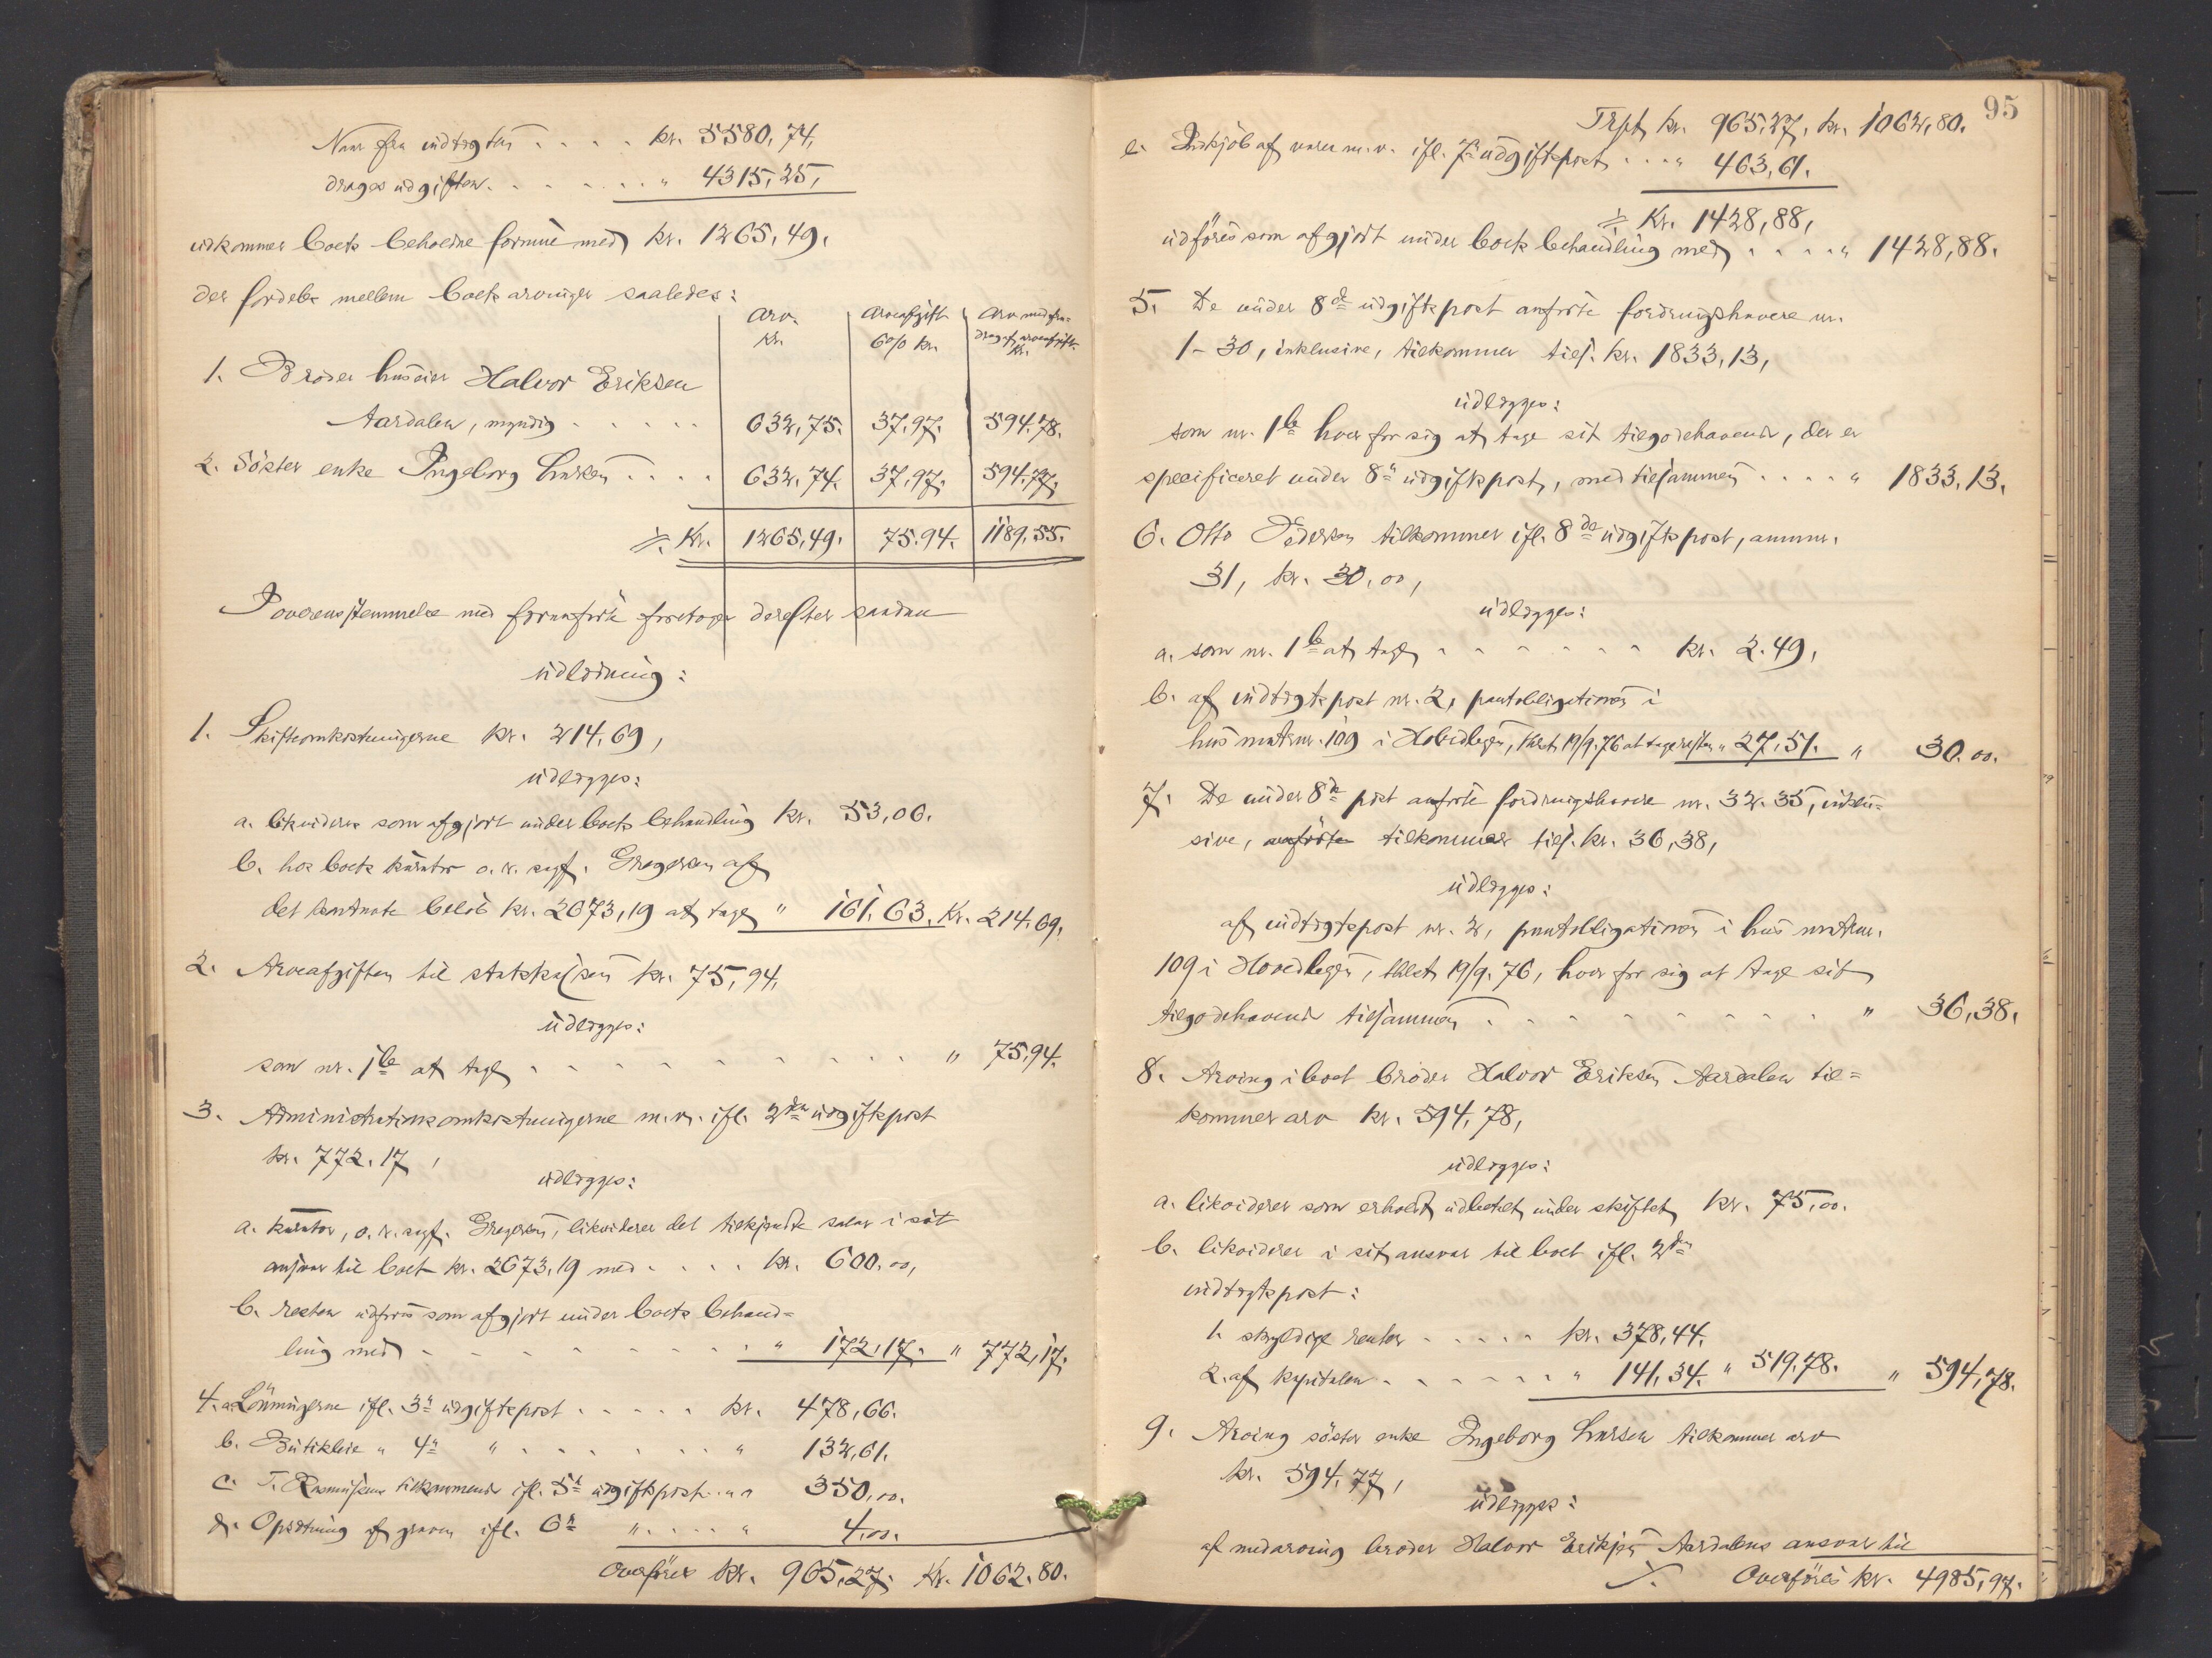 Naar fra indtægten . . . . kr. 5580,74,
drages udgiften . . . . . . " 4315,25,
udkommer boets beholdne formue med kr. 1265,49.
der fordeles mellem boets arvinger saaledes:
Arv. Arveafgift Arv med fra-
Kr. 6% kr. drag af arveafgift
Kr.
1. Broder huseier Halvor Eriksen
Aardalen, myndig . . . . . 632,75. 37,97. 594.78.
2. Söster enke Ingeborg Larsen . . . . 632.74. 37,97. 594,77.
÷ Kr. 1265,49. 75.94. 1189,55.
I overensstemmelse med foranförte foretages derefter saadan
udlodning:
1. Skifteomkostningerne kr. 214,69,
udlægges:
a. likvideres som afgjort under boets behandling kr. 53,06.
b. hos boets kurator o.r.sagf. Gregersen af
det kontante belöb kr. 2673,19 at tage " 161.63. Kr. 214.69.
2. Arveafgiften til statskassen kr. 75,94,
udlægges:
som nr. 1 b at tage - - - - - - - - - " 75,94.
3. Administrationsomkostningerne m.v. ifl. 2den udgiftspost
kr. 772.17,
udlægges:
a. kurator, o.r.sagf. Gregersen, likviderer det tilkjendte salær i sit
ansvar til boet kr. 2673,19 med . . . . kr. 600.00,
b. resten udföres som afgjort under boets behand-
ling med - - - - - - - - " 172,17. " 772,17.
4. a. Lönningerne ifl. 3die udgiftspost . . . . . kr. 478,66.
b. Butikleie " 4de " - - - - - - " 132,61.
c. T. Rasmussens tilkommende ifl. 5te udgiftspost . . " 350,00.
d. Opretning af graven ifl. 6te " . . . . " 4.00.
Overföres kr. 965,27. Kr. 1062.80.
95
Trspt kr. 965,27, kr. 1062,80.
e. Indkjöb af varer m.v. ifl. 7de udgiftspost . . . " 463,61.
÷ Kr. 1428,88,
udföres som afgjort under boets behandling med . . . . " 1428,88.
5. De under 8de udgiftspost anförte fordringshavere nr.
1-30, inklusive, tilkommer tils. kr. 1833,13,
udlægges:
som nr. 1 b hver for sig at tage sit tilgodehavende, der er
specificeret under 8de udgiftspost, med tilsammen . . . . " 1833,13.
6. Otto Pedersen tilkommer ifl. 8de udgiftspost, ammnr.
31, kr. 30,00,
udlægges:
a. som nr. 1 b at tage - - - - - - kr. 2.49,
b. af indtægtspost nr. 2, pantobligationen i
hus matrnr. 109 i thlst 19/9.76 at tage resten " 27,51. " 30.00.
7. De under 8de post anförte fordringshavere nr. 32-35, inklu-
sive, anförte tilkommer tils. kr. 36,38,
udlægges:
af indtægtspost nr. 2, pantobligationen i hus matrnr.
109 i thlst 19/9.76, hver for sig at tage sit
tilgodehavende tilsammen - - - - - - - - - " 36,38.
8. Arving i boet broder Halvor Eriksen Aardalen til-
kommer arv kr. 594,78,
udlægges:
a. likviderer som erholdt udbetalt under skiftet kr. 75,00.
b. likviderer i sit ansvar til boet ifl. 2den
indtægtspost:
1. skyldige renter . . . . . kr. 378,44.
2. af kapitalen . . . . . . " 141.34. " 519,78. " 594,78.
9. Arving söster enke Ingeborg Larsen tilkommer arv
kr. 594.77,
udlægges:
af medarving broder Halvor Eriksen Aardalens ansvar til
Overföres kr. 4985,97.